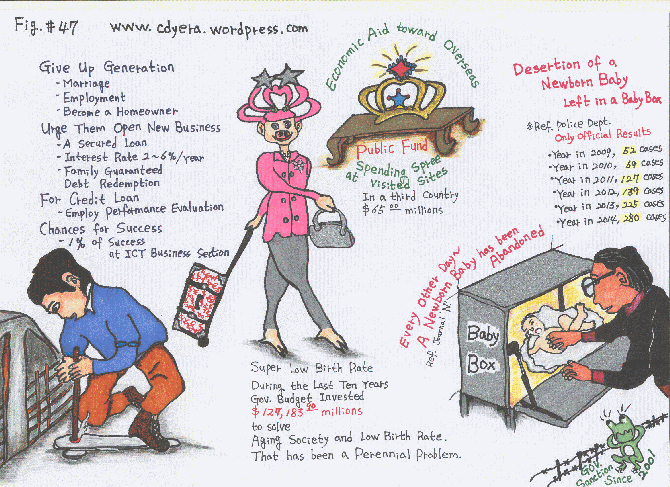 Fig. #47
www.cdyera.wordpress.com
Give Up Generation
- Marriage
- Employment
- Become a Homeowner
Urge Them Open New Business
- A Secured Loan
- Interest Rate 2~6%/year
- Family Guaranteed
Debt Redemption
For Credit Loan
- Employ Performance Evaluation
Chances for Success
- 1% of Success
at ICT Business Section
Economic Aid toward Overseas
Public Fund
Spending Spree
at Visited Sites
In a third Country
$65.00 millions
Desertion of a
Newborn Baby
Left in a Baby Box
*Ref. Police Dept.
Only Official Results
*Year in 2009, 52 cases
*Year in 2010, 69 cases
*Year in 2011, 127 cases
*Year in 2012, 139 cases
*Year in 2013, 225 cases
*Year in 2014, 280 cases
Every Other Day~
A Newborn Baby has been
Abandoned
Ref. Journal N.
Baby
Box
Super Low Birth Rate
During the Last Ten Years
Gov. Budget Invested
$127,183.00 millions
to solve
Aging Society and Low Birth Rate.
That has been a Perennial Problem.
GOV.
Sanction
Since 2001